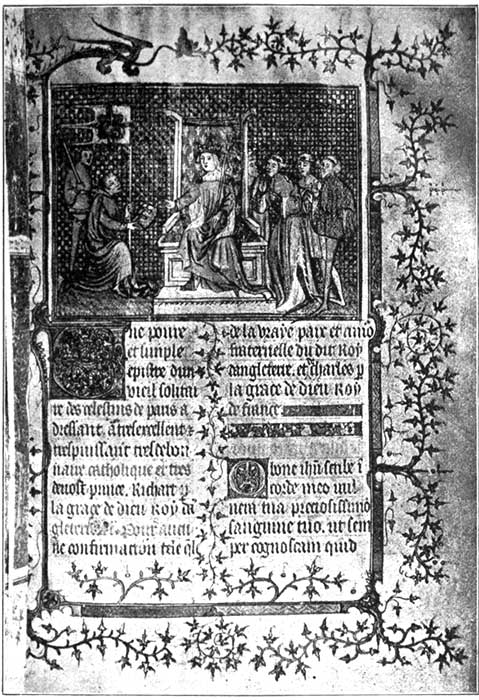 ne povre
et simple
epistre dun
vieil solitai
re des celestins de paris a
dressant, a tresexcellent et
trespuissant tresdebon
naire catholique et tres
devost prince, Richart p
la grace de dieu Roy da
gleterre Pour aucu
ne confirmation tele ql
de la vraye paix et amo
fraternelle du dit Roy
dangleterre, et charles p
la grace de dieu Roy
de france
O bone ihu scribe i
corde meo vul
nera tua preciosissimo
sanguine tuo, ut sem
per cognoscam quid